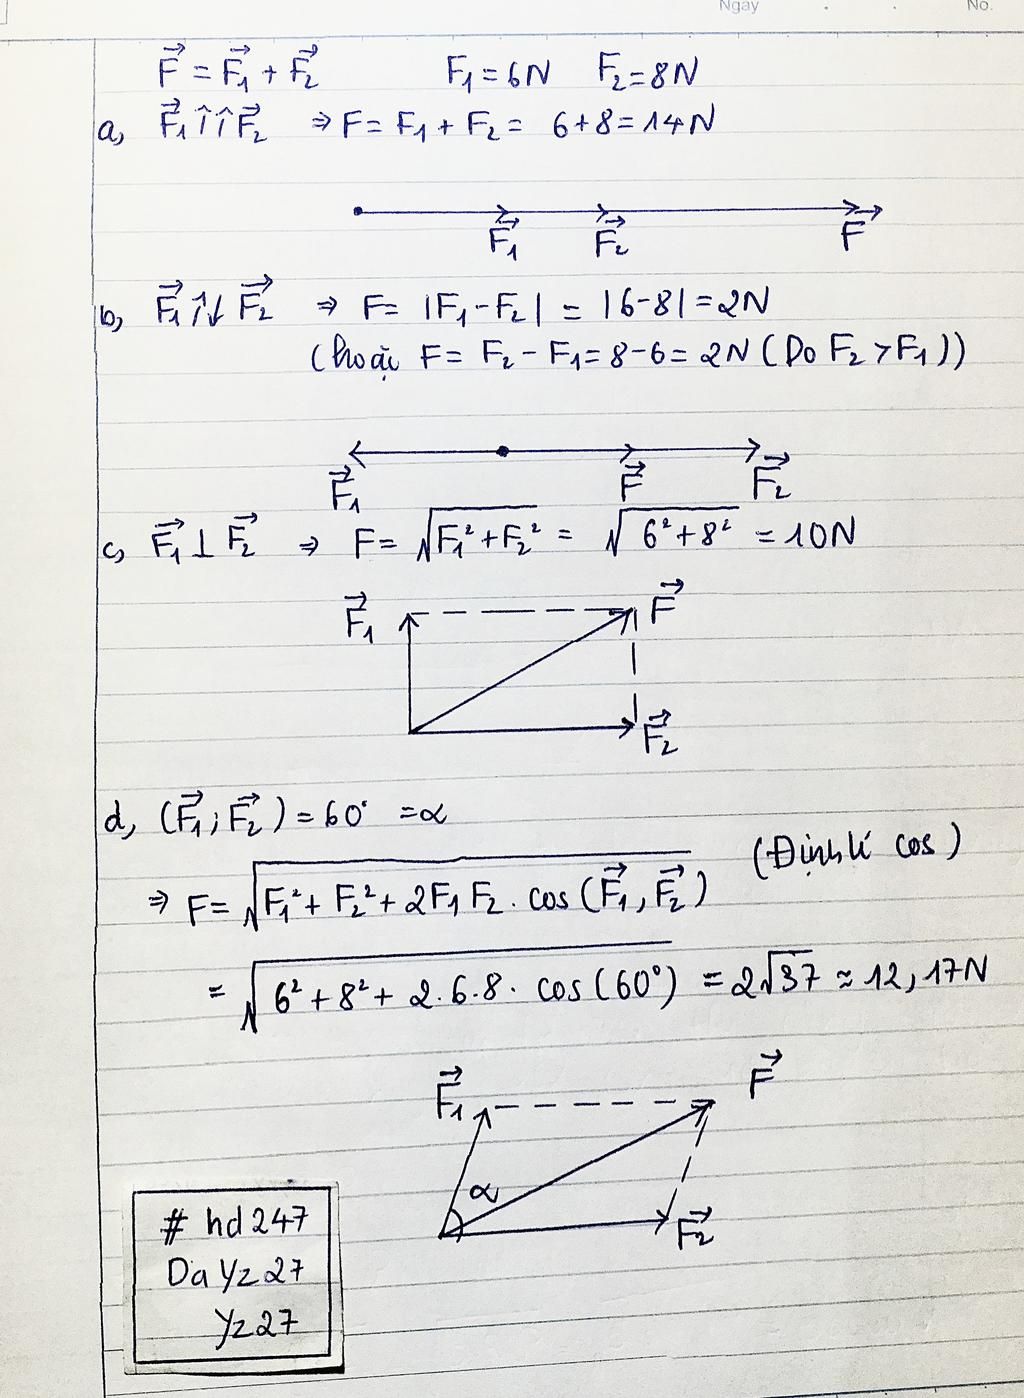 Ngày No.
F⃗ = F⃗₁ + F⃗₂ F₁ = 6N F₂ = 8N
a, F⃗₁ ↑↑ F⃗₂ ⇒ F = F₁ + F₂ = 6 + 8 = 14N
F⃗₁ F⃗₂ F⃗
b, F⃗₁ ↑↓ F⃗₂ ⇒ F = |F₁ - F₂| = |6 - 8| = 2N
(hoặc F = F₂ - F₁ = 8 - 6 = 2N (Do F₂ > F₁))
F⃗₁ F⃗ F⃗₂
c, F⃗₁ ⊥ F⃗₂ ⇒ F = √(F₁² + F₂²) = √(6² + 8²) = 10N
F⃗₁ F⃗
F⃗₂
d, (F⃗₁; F⃗₂) = 60° = α
⇒ F = √(F₁² + F₂² + 2F₁F₂ . cos(F⃗₁, F⃗₂)) (Định lí cos)
= √(6² + 8² + 2.6.8. cos(60°)) = 2√37 ≈ 12,17N
F⃗₁ F⃗
α
F⃗₂
# hd247
DaYz27
Yz27